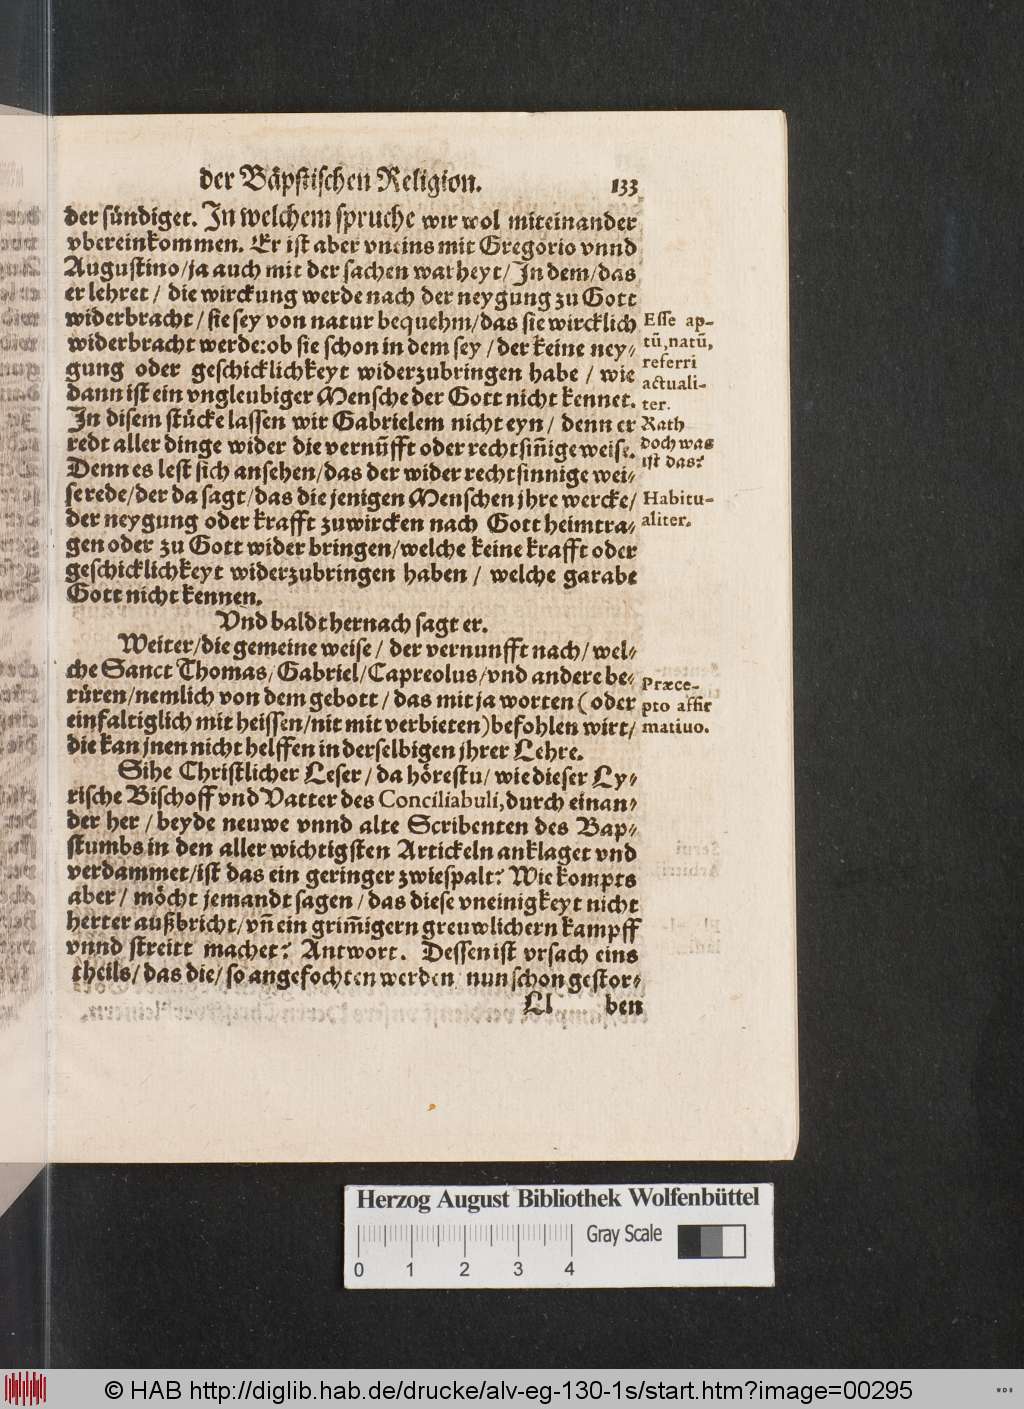 der Bäpstischen Religion. 133
der sündiget. In welchem spruche wir wol miteinander
vbereinkommen. Er ist aber vneins mit Gregorio vnnd
Augustino/ja auch mit der sachen warheyt/In dem/das
er lehret/ die wirckung werde nach der neygung zu Gott
widerbracht/sie sey von natur bequehm/das sie wircklich
widerbracht werde:ob sie schon in dem sey/der keine ney⸗
gung oder geschicklichkeyt widerzubringen habe/ wie
dann ist ein vngleubiger Mensche der Gott nicht kennet.
In disem stücke lassen wir Gabrielem nicht eyn/ denn er
redt aller dinge wider die vernūfft oder rechtsiñige weise.
Denn es lest sich ansehen/das der wider rechtsinnige wei⸗
se rede/der da sagt/das die jenigen Menschen jhre wercke/
der neygung oder krafft zuwircken nach Gott heimtra⸗
gen oder zu Gott wider bringen/welche keine krafft oder
geschicklichkeyt widerzubringen haben/ welche garabe
Gott nicht kennen.
Esse ap-
tū,natū,
referri
actuali-
ter.
Rath
doch was
ist das?
Habitu-
aliter.
Vnd baldt hernach sagt er.
Weiter/die gemeine weise/ der vernunfft nach/wel⸗
che Sanct Thomas/Gabriel/Capreolus/vnd andere be⸗
rüren/nemlich von dem gebott/das mit ja worten (oder
einfaltiglich mit heissen/nit mit verbieten)befohlen wirt/
die kan jnen nicht helffen in derselbigen jhrer Lehre.
Præce-
pto affir
matiuo.
Sihe Christlicher Leser/da hörestu/wie dieser Ly⸗
rische Bischoff vnd Vatter des Conciliabuli,durch einan⸗
der her/beyde neuwe vnnd alte Scribenten des Bap⸗
stumbs in den aller wichtigsten Artickeln anklaget vnd
verdammet/ist das ein geringer zwiespalt? Wie kompts
aber/ möcht jemandt sagen/das diese vneinigkeyt nicht
herter außbricht/vñ ein grim̃igern greuwlichern kampff
vnnd streitt machet? Antwort. Dessen ist vrsach eins
theils/das die/so angefochten werden nun schon gestor⸗
Ll ben
Herzog August Bibliothek Wolfenbüttel
Gray Scale
0 1 2 3 4
© HAB http://diglib.hab.de/drucke/alv-eg-130-1s/start.htm?image=00295